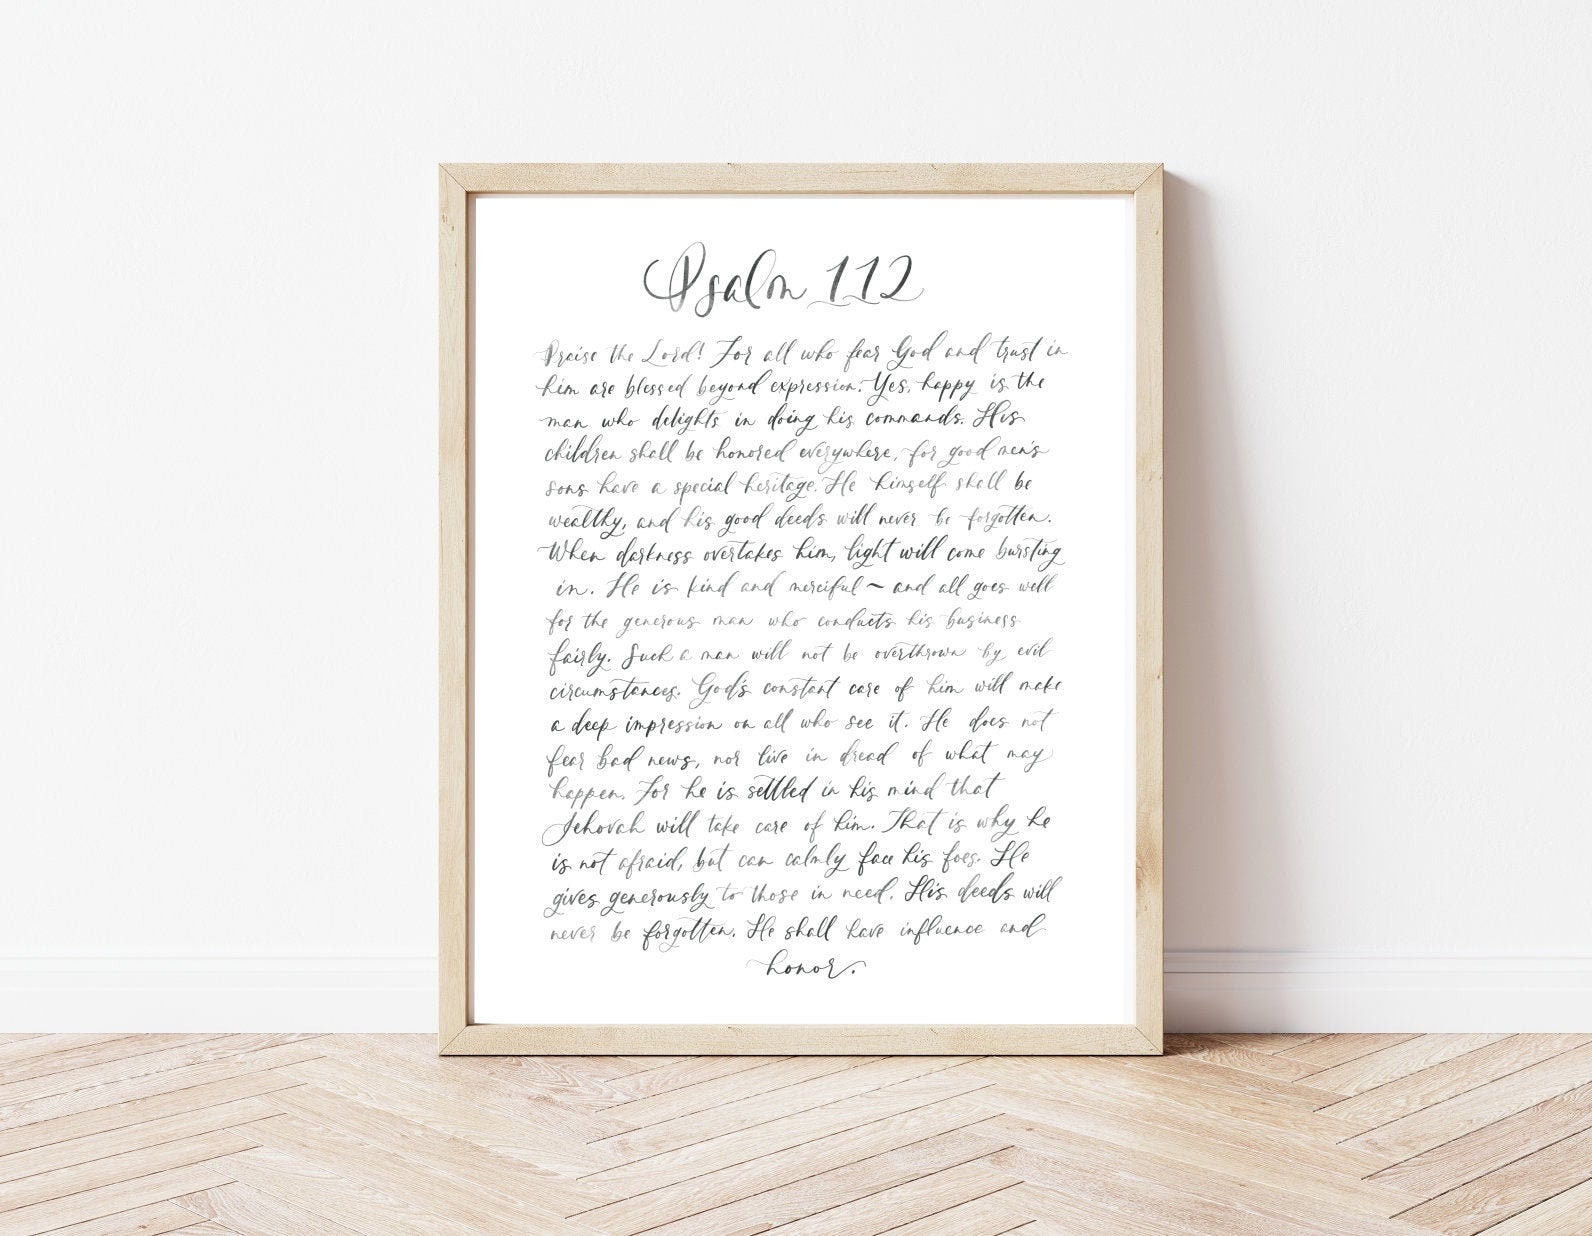 Psalm 112
Praise the Lord! For all who fear God and trust in
him are blessed beyond expression. Yes, happy is the
man who delights in doing his commands. His
children shall be honored everywhere, for good men's
sons have a special heritage. He himself shall be
wealthy, and his good deeds will never be forgotten.
When darkness overtakes him, light will come bursting
in. He is kind and merciful ~ and all goes well
for the generous man who conducts his business
fairly. Such a man will not be overthrown by evil
circumstances. God's constant care of him will make
a deep impression on all who see it. He does not
fear bad news, nor live in dread of what may
happen. For he is settled in his mind that
Jehovah will take care of him. That is why he
is not afraid, but can calmly face his foes. He
gives generously to those in need. His deeds will
never be forgotten. He shall have influence and
honor.